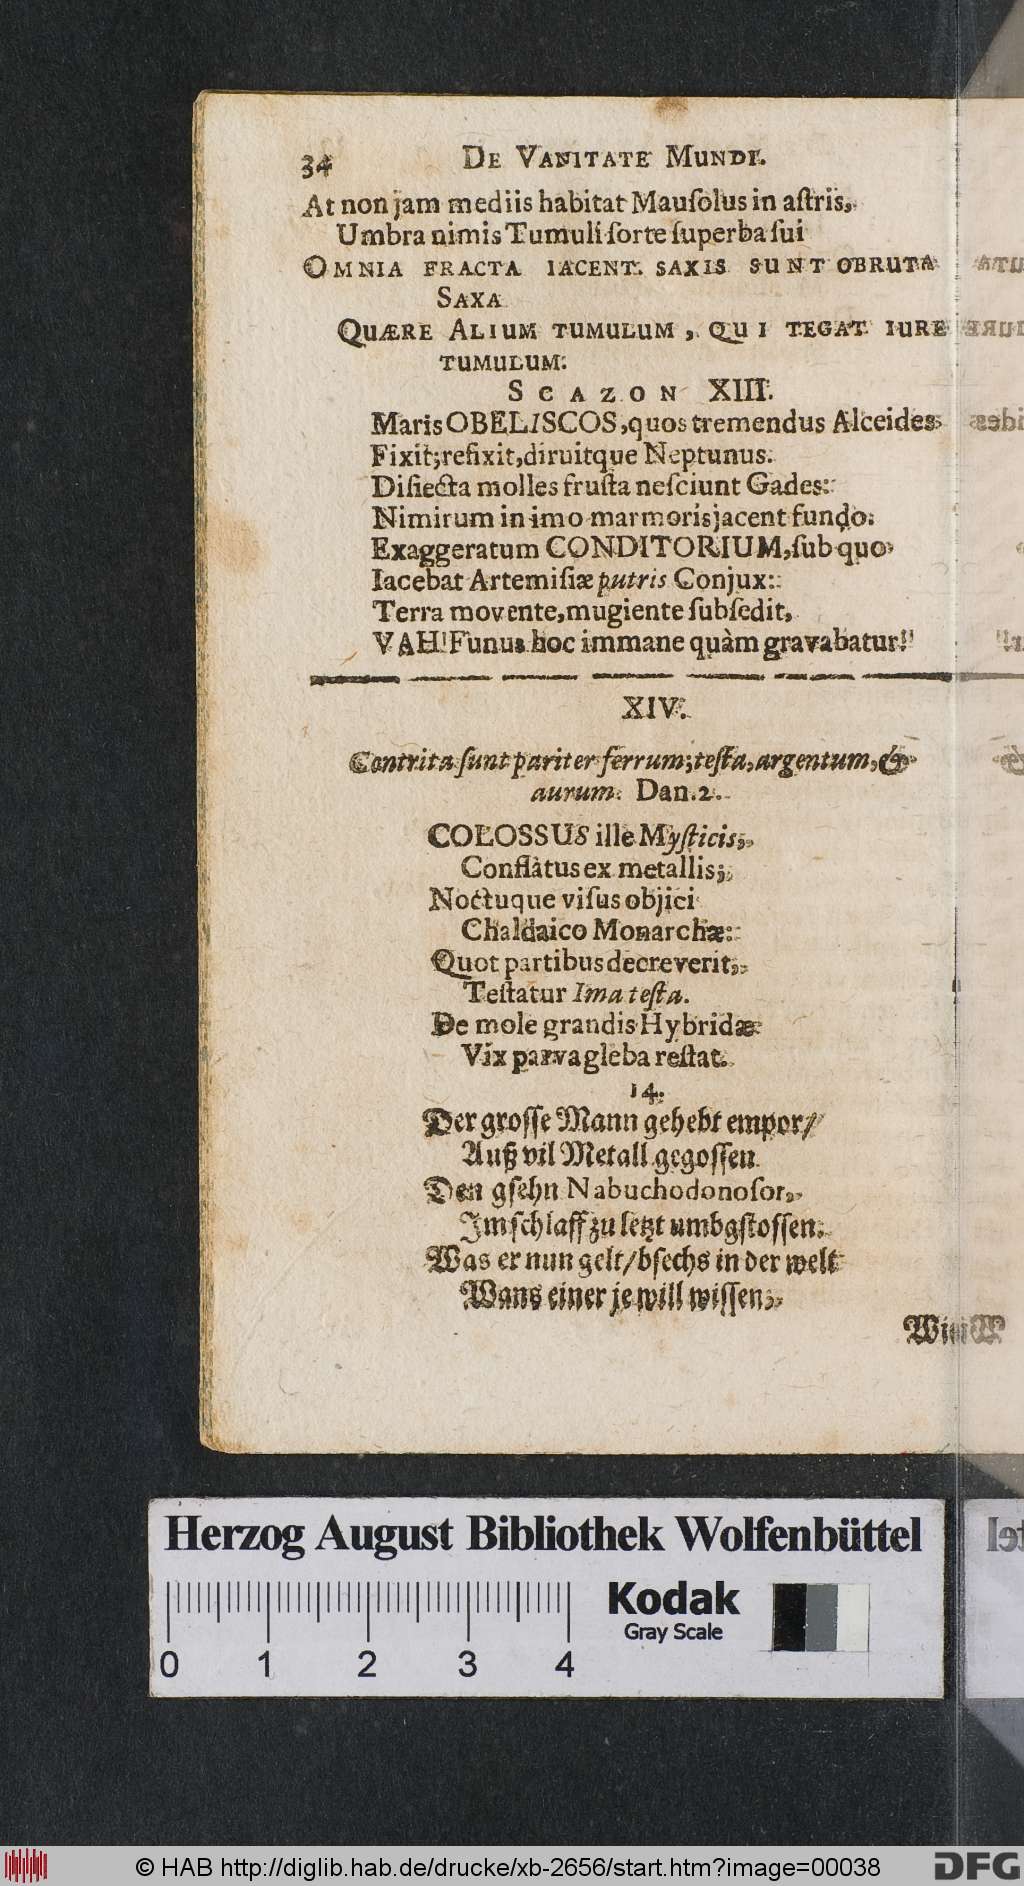 34 DE VANITATE MUNDI.
At non jam mediis habitat Mauſolus in aſtris,
Umbra nimis Tumuli ſorte ſuperba ſui
OMNIA FRACTA IACENT. SAXIS SUNT OBRUTA
SAXA
QUÆRE ALIUM TUMULUM, QUI TEGAT IURE
TUMULUM.
SCAZON XIII.
Maris OBELISCOS, quos tremendus Alceides
Fixit; refixit, diruitque Neptunus.
Diſiecta molles fruſta neſciunt Gades:
Nimirum in imo marmoris jacent fundo.
Exaggeratum CONDITORIUM, ſub quo
Iacebat Artemiſiæ putris Conjux:
Terra movente, mugiente ſubſedit,
VAH! Funus hoc immane quàm gravabatur!
XIV.
Contrita ſunt pariter ferrum, teſta, argentum, &
aurum. Dan. 2.
COLOSSUS ille Myſticis,
Conflàtus ex metallis;
Noctuque viſus objici
Chaldaico Monarchæ:
Quot partibus decreverit,
Teſtatur Ima teſta.
De mole grandis Hybridæ
Vix parva gleba reſtat.
14.
Der groſſe Mann gehebt empor/
Auß vil Metall gegoſſen
Den gſehn Nabuchodonoſor,
Im ſchlaff zu letzt umbgſtoſſen.
Was er nun gelt/ bſechs in der welt
Wans einer je will wiſſen,
Herzog August Bibliothek Wolfenbüttel
0 1 2 3 4
Kodak
Gray Scale
© HAB http://diglib.hab.de/drucke/xb-2656/start.htm?image=00038
DFG